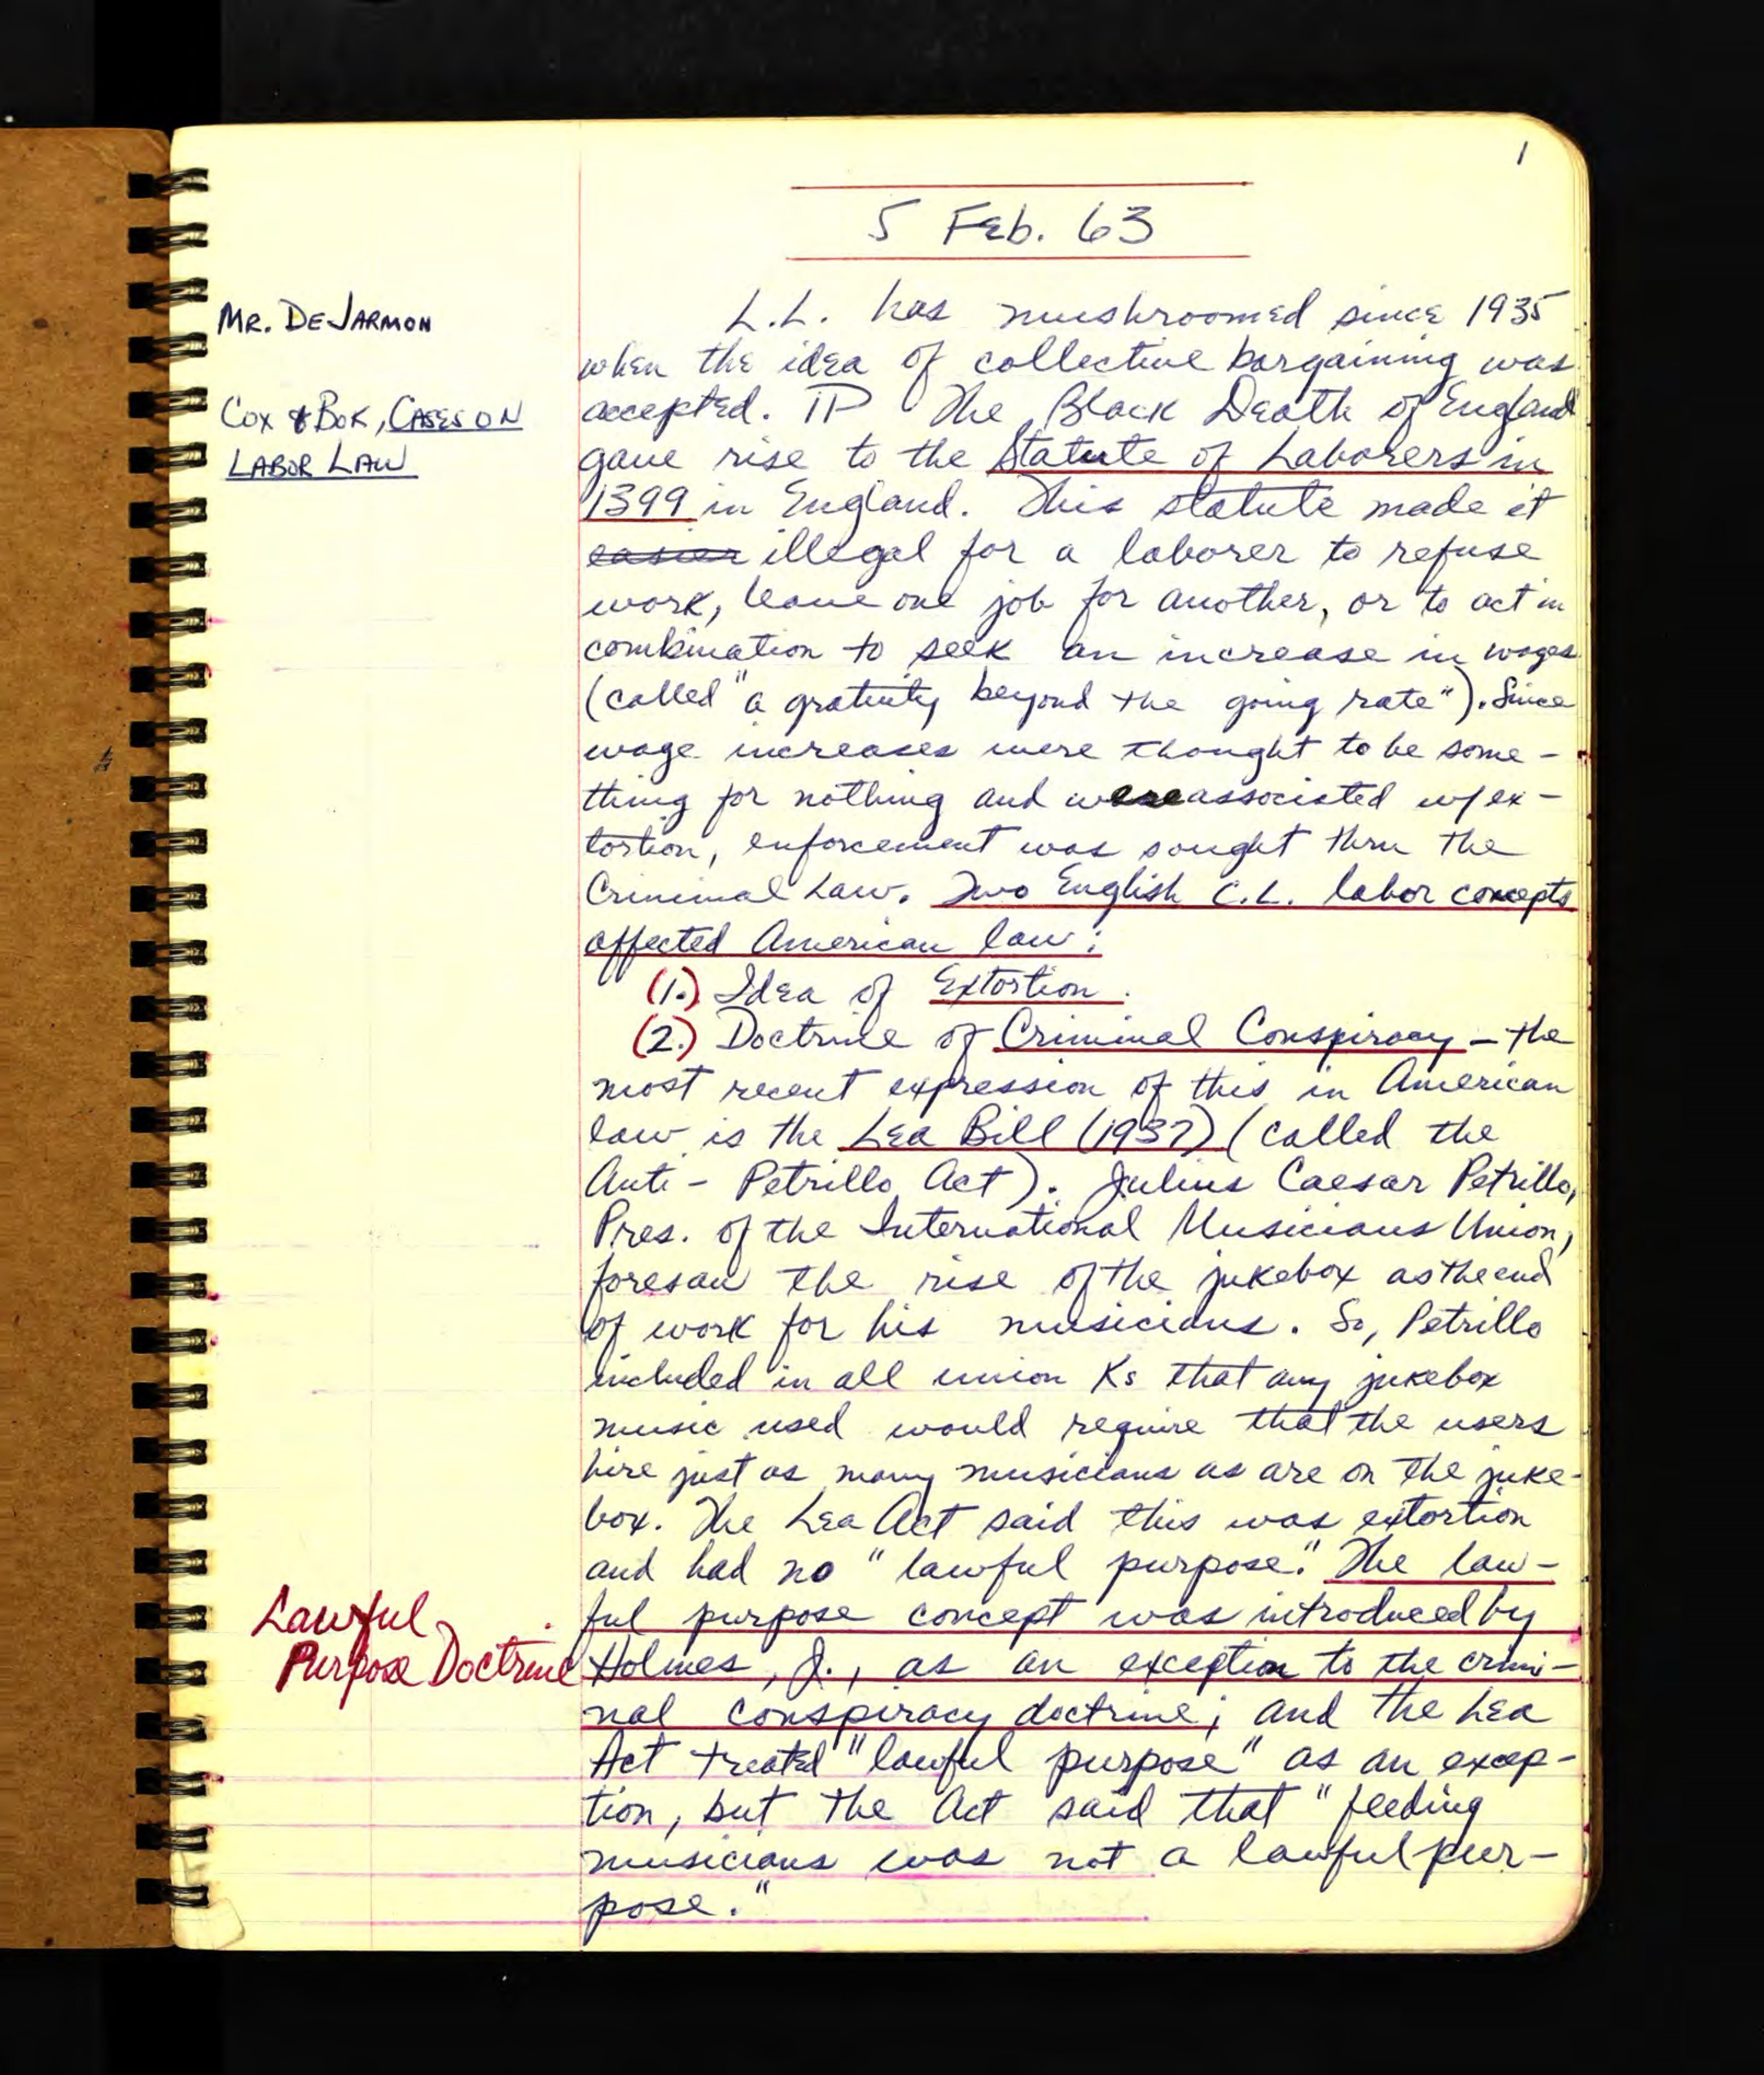 1
5 Feb. 63
MR. DEJARMON
COX & BOK, CASES ON
LABOR LAW
L.L. has mushroomed since 1935
when the idea of collective bargaining was
accepted. ¶ The Black Death of England
gave rise to the Statute of Laborers in
1399 in England. This statute made it
easier illegal for a laborer to refuse
work, leave one job for another, or to act in
combination to seek an increase in wages
(called "a gratuity beyond the going rate"). Since
wage increases were thought to be some-
thing for nothing and were associated w/ ex-
tortion, enforcement was sought thru the
Criminal Law. Two English C.L. labor concepts
affected American law:
(1.) Idea of Extortion.
(2.) Doctrine of Criminal Conspiracy - the
most recent expression of this in American
law is the Lea Bill (1937) (called the
Anti-Petrillo Act). Julius Caesar Petrillo,
Pres. of the International Musicians Union,
foresaw the rise of the jukebox as the end
of work for his musicians. So, Petrillo
included in all union Ks that any jukebox
music used would require that the users
hire just as many musicians as are on the juke-
box. The Lea Act said this was extortion
and had no "lawful purpose." The law-
ful purpose concept was introduced by
Lawful
Purpose Doctrine
Holmes, J., as an exception to the crimi-
nal conspiracy doctrine; and the Lea
Act treated "lawful purpose" as an excep-
tion, but the Act said that "feeding
musicians was not a lawful pur-
pose."